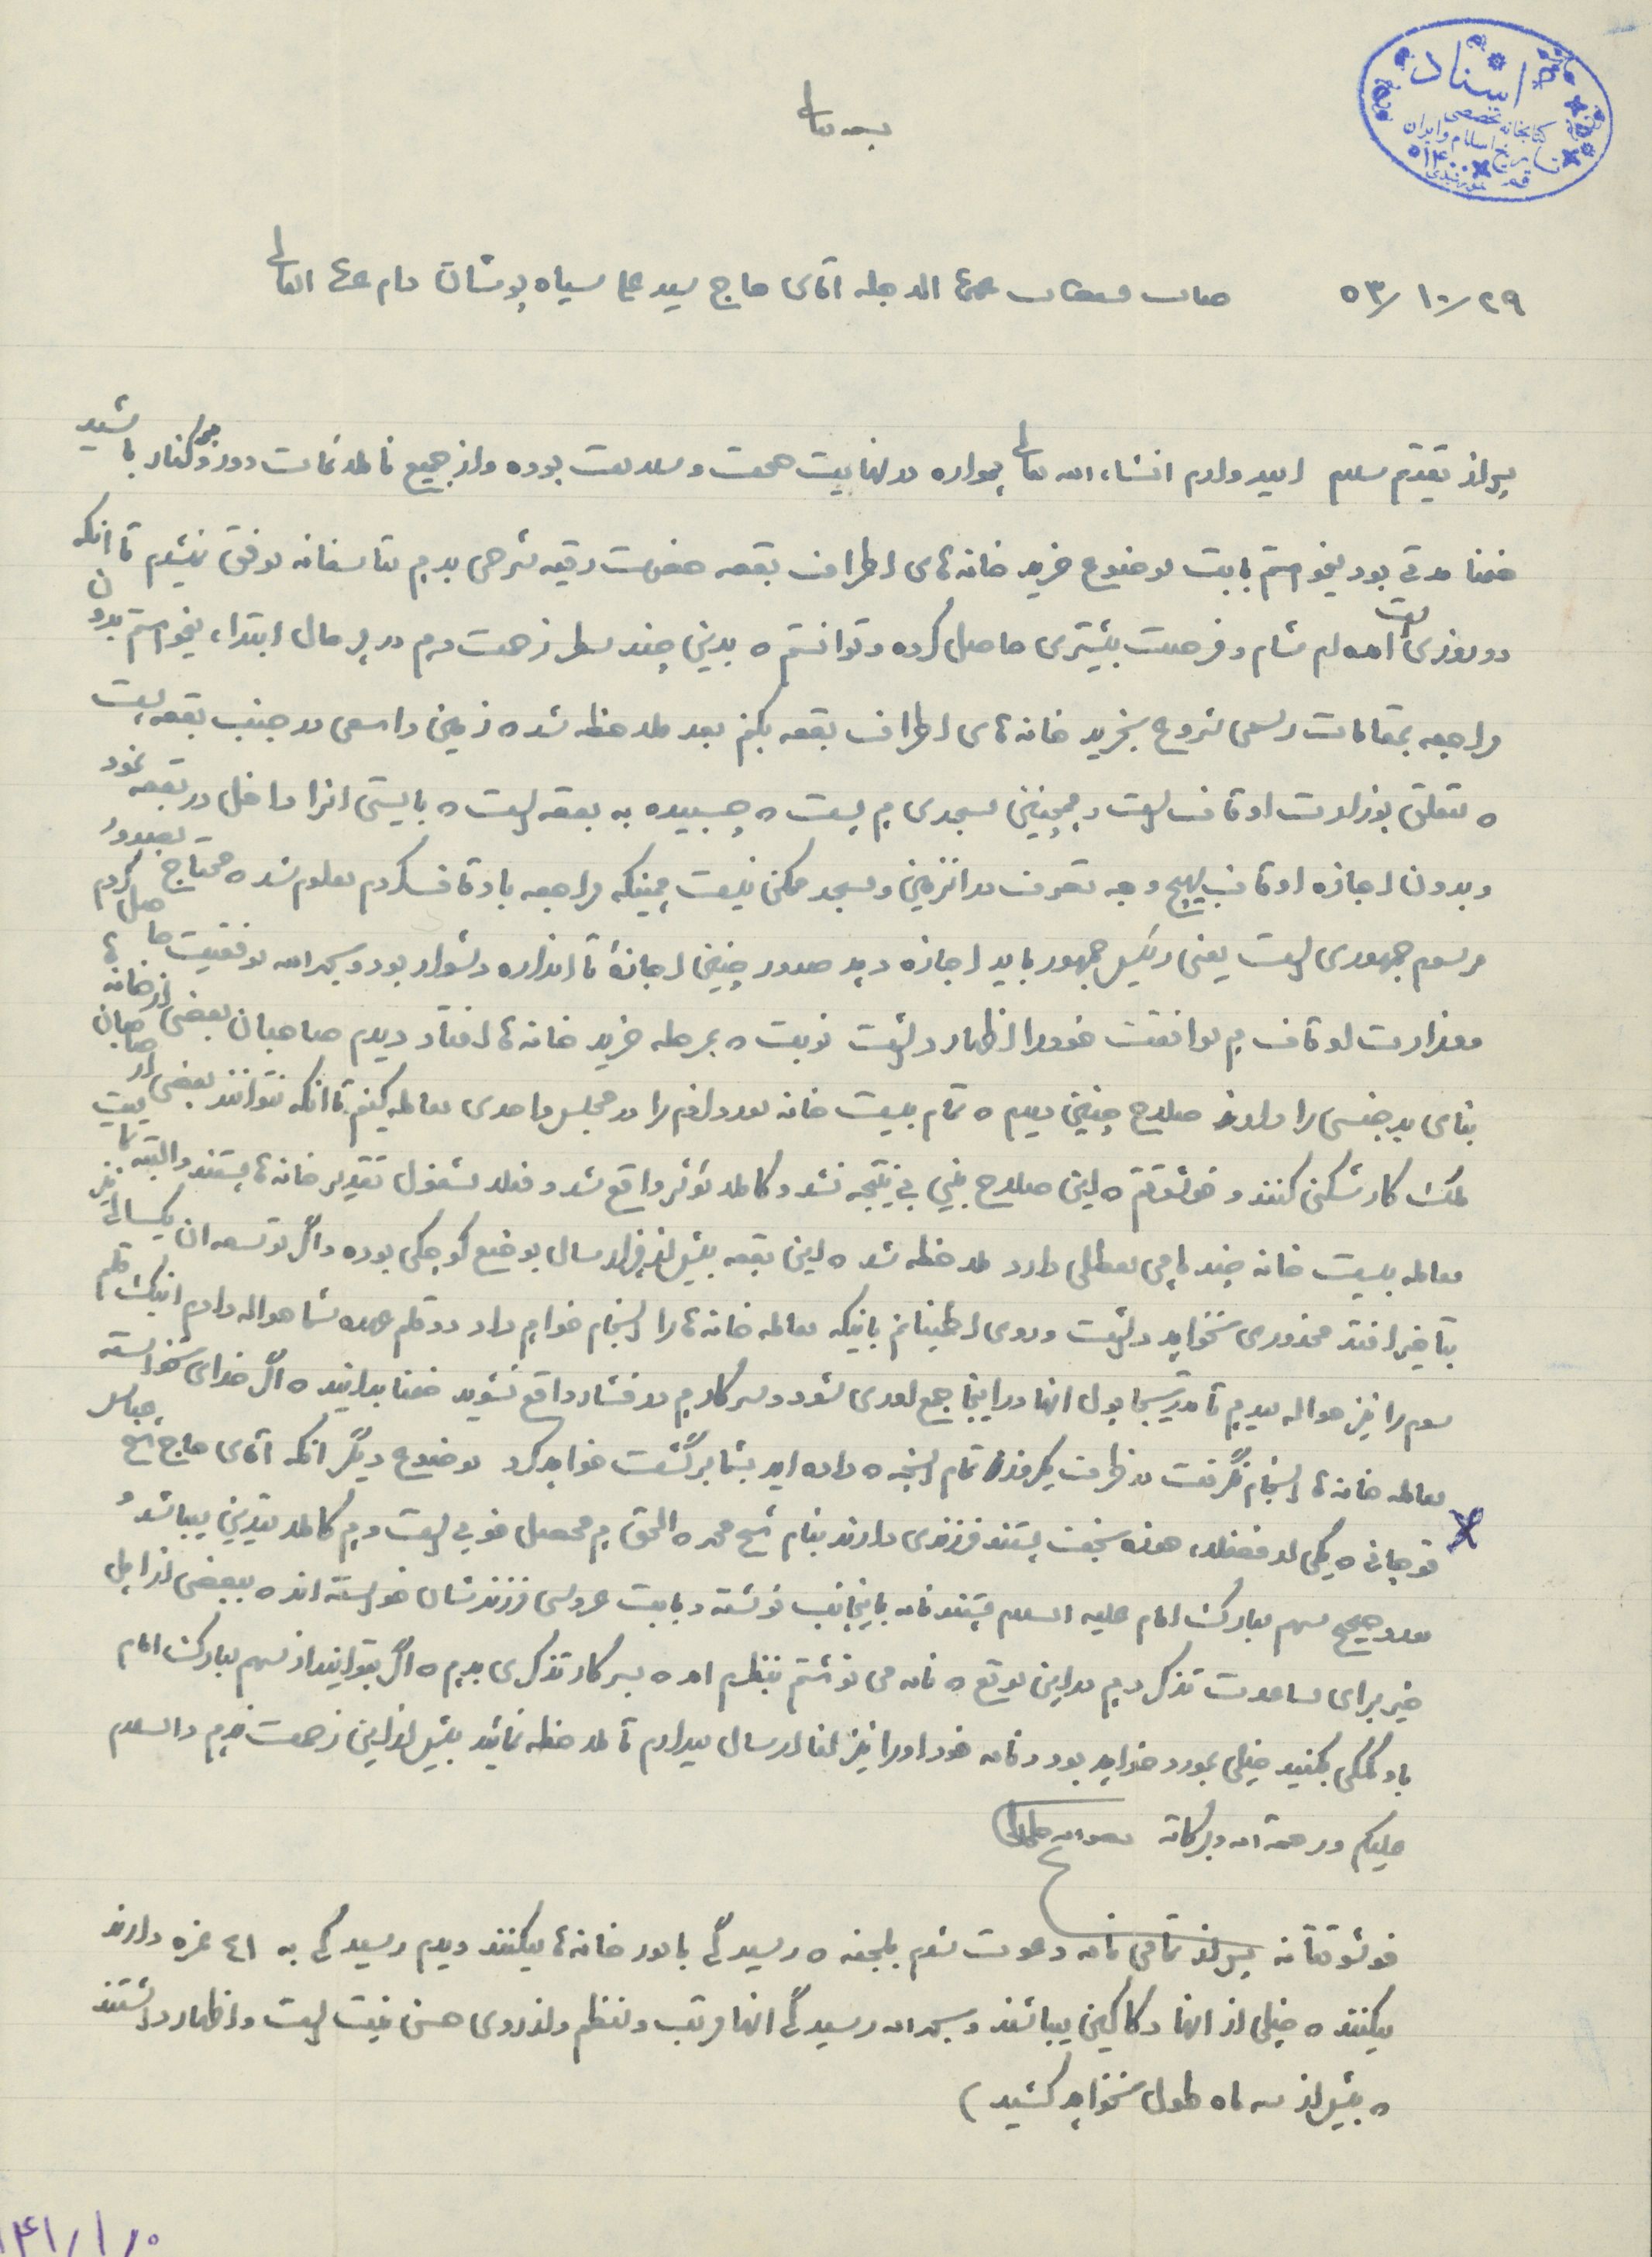 اسناد
کتابخانه تخصصی
تاریخ اسلام و ایران
قم
بسمه تعالی
۵۳/۱۰/۲۹ جناب مستطاب عمدة الاجله آقای حاج سید علی سیاه پوشان دام عزه العالی
پس از تقدیم سلام امید وارم انشاء الله تعالی همواره در نهایت صحت و سلامت بوده و از جمیع ناملائمات دور و بر کنار باشید
ضمنا مدتی بود میخواستم بابت موضوع خرید خانه های اطراف بقعه حضرت رقیه شرحی بدهم متاسفانه موفق نمیشدم تا انکه
دو روزی است امده ام شام و فرصت بیشتری حاصل کرده و توانستم ه بدین چند سطر زحمت دهم در هر حال ابتداء میخواستم بدون
مراجعه بمقامات رسمی شروع بخرید خانه های اطراف بقعه بکنم بعد ملاحظه شد ه زمین واسعی در جنب بقعه است
ه متعلق بوزارت اوقاف است و همچنین مسجدی هم هست ه چسبیده به بقعه است ه بایستی انرا داخل در بقعه نمود
و بدون اجازه اوقاف بهیچ وجه تصرف در انزمین و مسجد ممکن نیست همینکه مراجعه باوقاف کردم معلوم شد ه محتاج بصدور
مرسوم جمهوری است یعنی رئیس جمهور باید اجازه دهد صدور چنین اجازهٔ تا اندازه دشوار بود و بحمد الله موفقیت حاصل کردم
و وزارت اوقاف هم موافقت خود را اظهار داشت نوبت ه بمرحله خرید خانه ها افتاد دیدم صاحبان بعضی از خانه ها
بنای بدجنسی را دارند صلاح چنین دیدم ه تمام بیست خانه مورد لزوم را در مجلس واحدی معامله کنیم تا انکه نتوانند بعضی از صاحبان
ملک کار شکنی کنند و خوشوقتم ه این صلاح بینی بی نتیجه نشد و کاملا موثر واقع شد و فعلا مشغول تقدیر خانه ها هستند و البته تمامیت
معامله بیست خانه چند ماهی معطلی دارد ملاحظه شد ه این بقعه بیش از هزار سال بوضع کوچکی بوده و اگر توسعه ان یکسال نیز
بتاخیر افتد محذوری نخواهد داشت و روی اطمینانم باینکه معامله خانه ها را انجام خواهم داد دو قلم عهده شما حواله دادم اینک قلم
سوم را نیز حواله میدهم تا تدریجا پول انها در اینجا جمع اوری شود و سرکار هم در فشار واقع نشوید ضمنا بدانید ه اگر خدای نخواسته
معامله خانه ها انجام نگرفت در ظرف یکروز تمام انچه ه داده اید بشما برگشت خواهد کرد موضوع دیگر انکه آقای حاج شیخ عباس
قوچانی ه یکی از فضلاء حوزه نجف هستند فرزندی دارند بنام شیخ محمد ه الحق هم محصل خوبی است و هم کاملا متدین میباشد و
مورد صحیح سهم مبارک امام علیه السلام هستند نامه باینجانب نوشته و بابت عروسی فرزندشان خواسته اند ه ببعضی از اهل
خیر برای مساعدت تذکر دهم در این موقع ه نامه می نوشتم بنظرم امد ه بسرکار تذکری بدهم ه اگر بتوانید از سهم مبارک امام
باو کمکی بکنید خیلی بمورد خواهد بود و نامه خود او را نیز لفا ارسال میدارم تا ملاحظه نمائید بیش از این زحمت ندهم و السلام
علیکم و رحمة الله و برکاته نصرالله خلخالی
خوشوقتانه پس از تمامی نامه دعوت شدم بلجنه ه رسیدگی بامور خانه ها میکنند دیدم رسیدگی به ٤١ نمره دارند
میکنند ه خیلی از انها دکاکین میباشند و بحمد الله رسیدگی انها مرتب و منظم و از روی حسن نیت است و اظهار داشتند
ه بیش از سه ماه طول نخواهد کشید )
۱۴۱/۱/۰